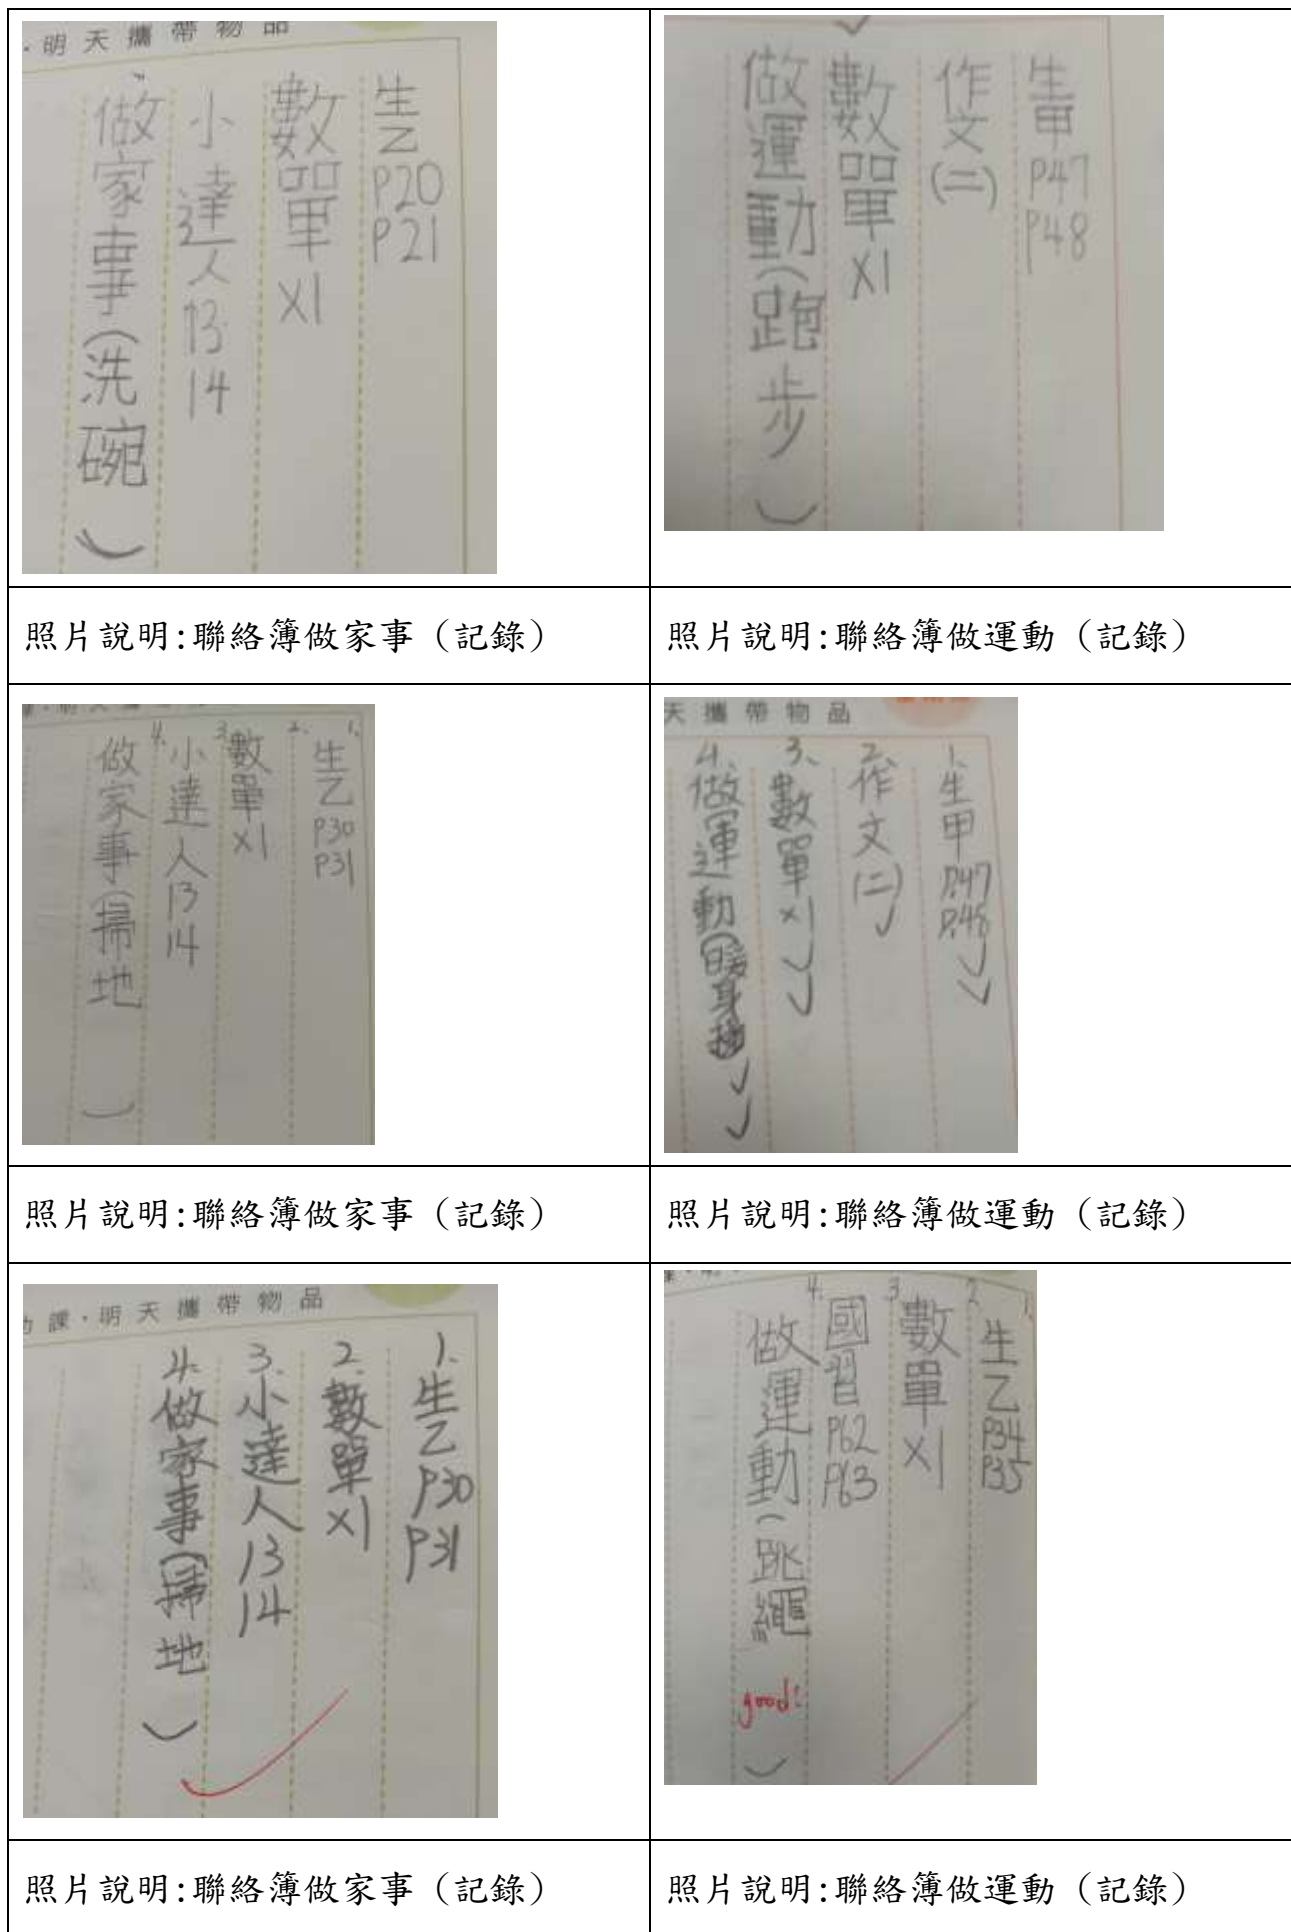 ·明天攜帶物品
生乙P20
P21
數單x1
小達人13.
14
做家事(洗碗)
生甲P47
P48
作文(二)
數單x1
做運動(跑步)
照片說明:聯絡簿做家事（記錄）
照片說明:聯絡簿做運動（記錄）
1.生乙P30
P31
2.數單x1
3.小達人13
14
4.做家事(掃地)
天攜帶物品
1.生甲P.47
P.48
2.作文(二)
3.數單x1
4.做運動(暖身
照片說明:聯絡簿做家事（記錄）
照片說明:聯絡簿做運動（記錄）
功課·明天攜帶物品
1.生乙P30
P31
2.數單x1
3.小達人13
14
4.做家事(掃地)
1.生乙P34
P35
2.數單x1
3.國習P62
P63
4.做運動(跳繩)
good!
照片說明:聯絡簿做家事（記錄）
照片說明:聯絡簿做運動（記錄）